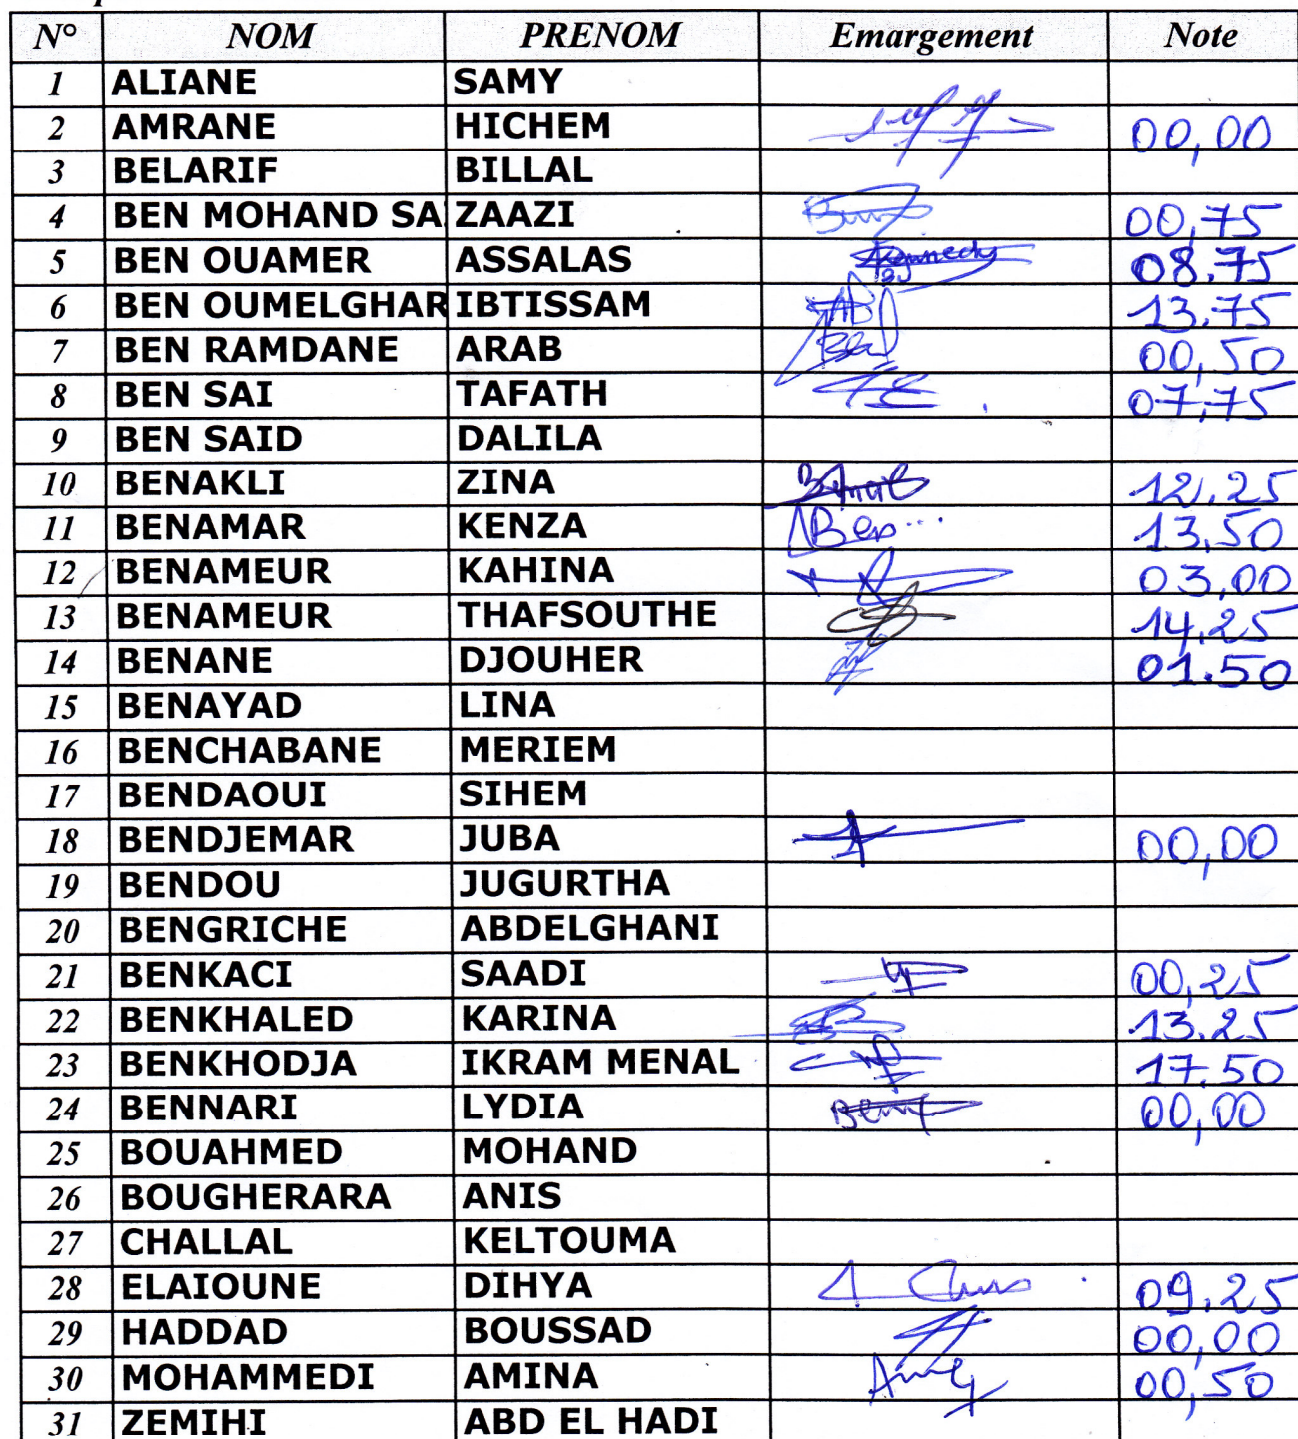 N° NOM PRENOM Emargement Note
1 ALIANE SAMY
2 AMRANE HICHEM 00,00
3 BELARIF BILLAL
4 BEN MOHAND SA ZAAZI 00,75
5 BEN OUAMER ASSALAS Kennedy 08.75
6 BEN OUMELGHAR IBTISSAM 13.75
7 BEN RAMDANE ARAB 00,50
8 BEN SAI TAFATH 07,75
9 BEN SAID DALILA
10 BENAKLI ZINA 12.25
11 BENAMAR KENZA Ben... 13,50
12 BENAMEUR KAHINA 03,00
13 BENAMEUR THAFSOUTHE 14,25
14 BENANE DJOUHER 01.50
15 BENAYAD LINA
16 BENCHABANE MERIEM
17 BENDAOUI SIHEM
18 BENDJEMAR JUBA 00,00
19 BENDOU JUGURTHA
20 BENGRICHE ABDELGHANI
21 BENKACI SAADI 00,25
22 BENKHALED KARINA 13.25
23 BENKHODJA IKRAM MENAL 17.50
24 BENNARI LYDIA 00,00
25 BOUAHMED MOHAND
26 BOUGHERARA ANIS
27 CHALLAL KELTOUMA
28 ELAIOUNE DIHYA 09.25
29 HADDAD BOUSSAD 00,00
30 MOHAMMEDI AMINA 00,50
31 ZEMIHI ABD EL HADI